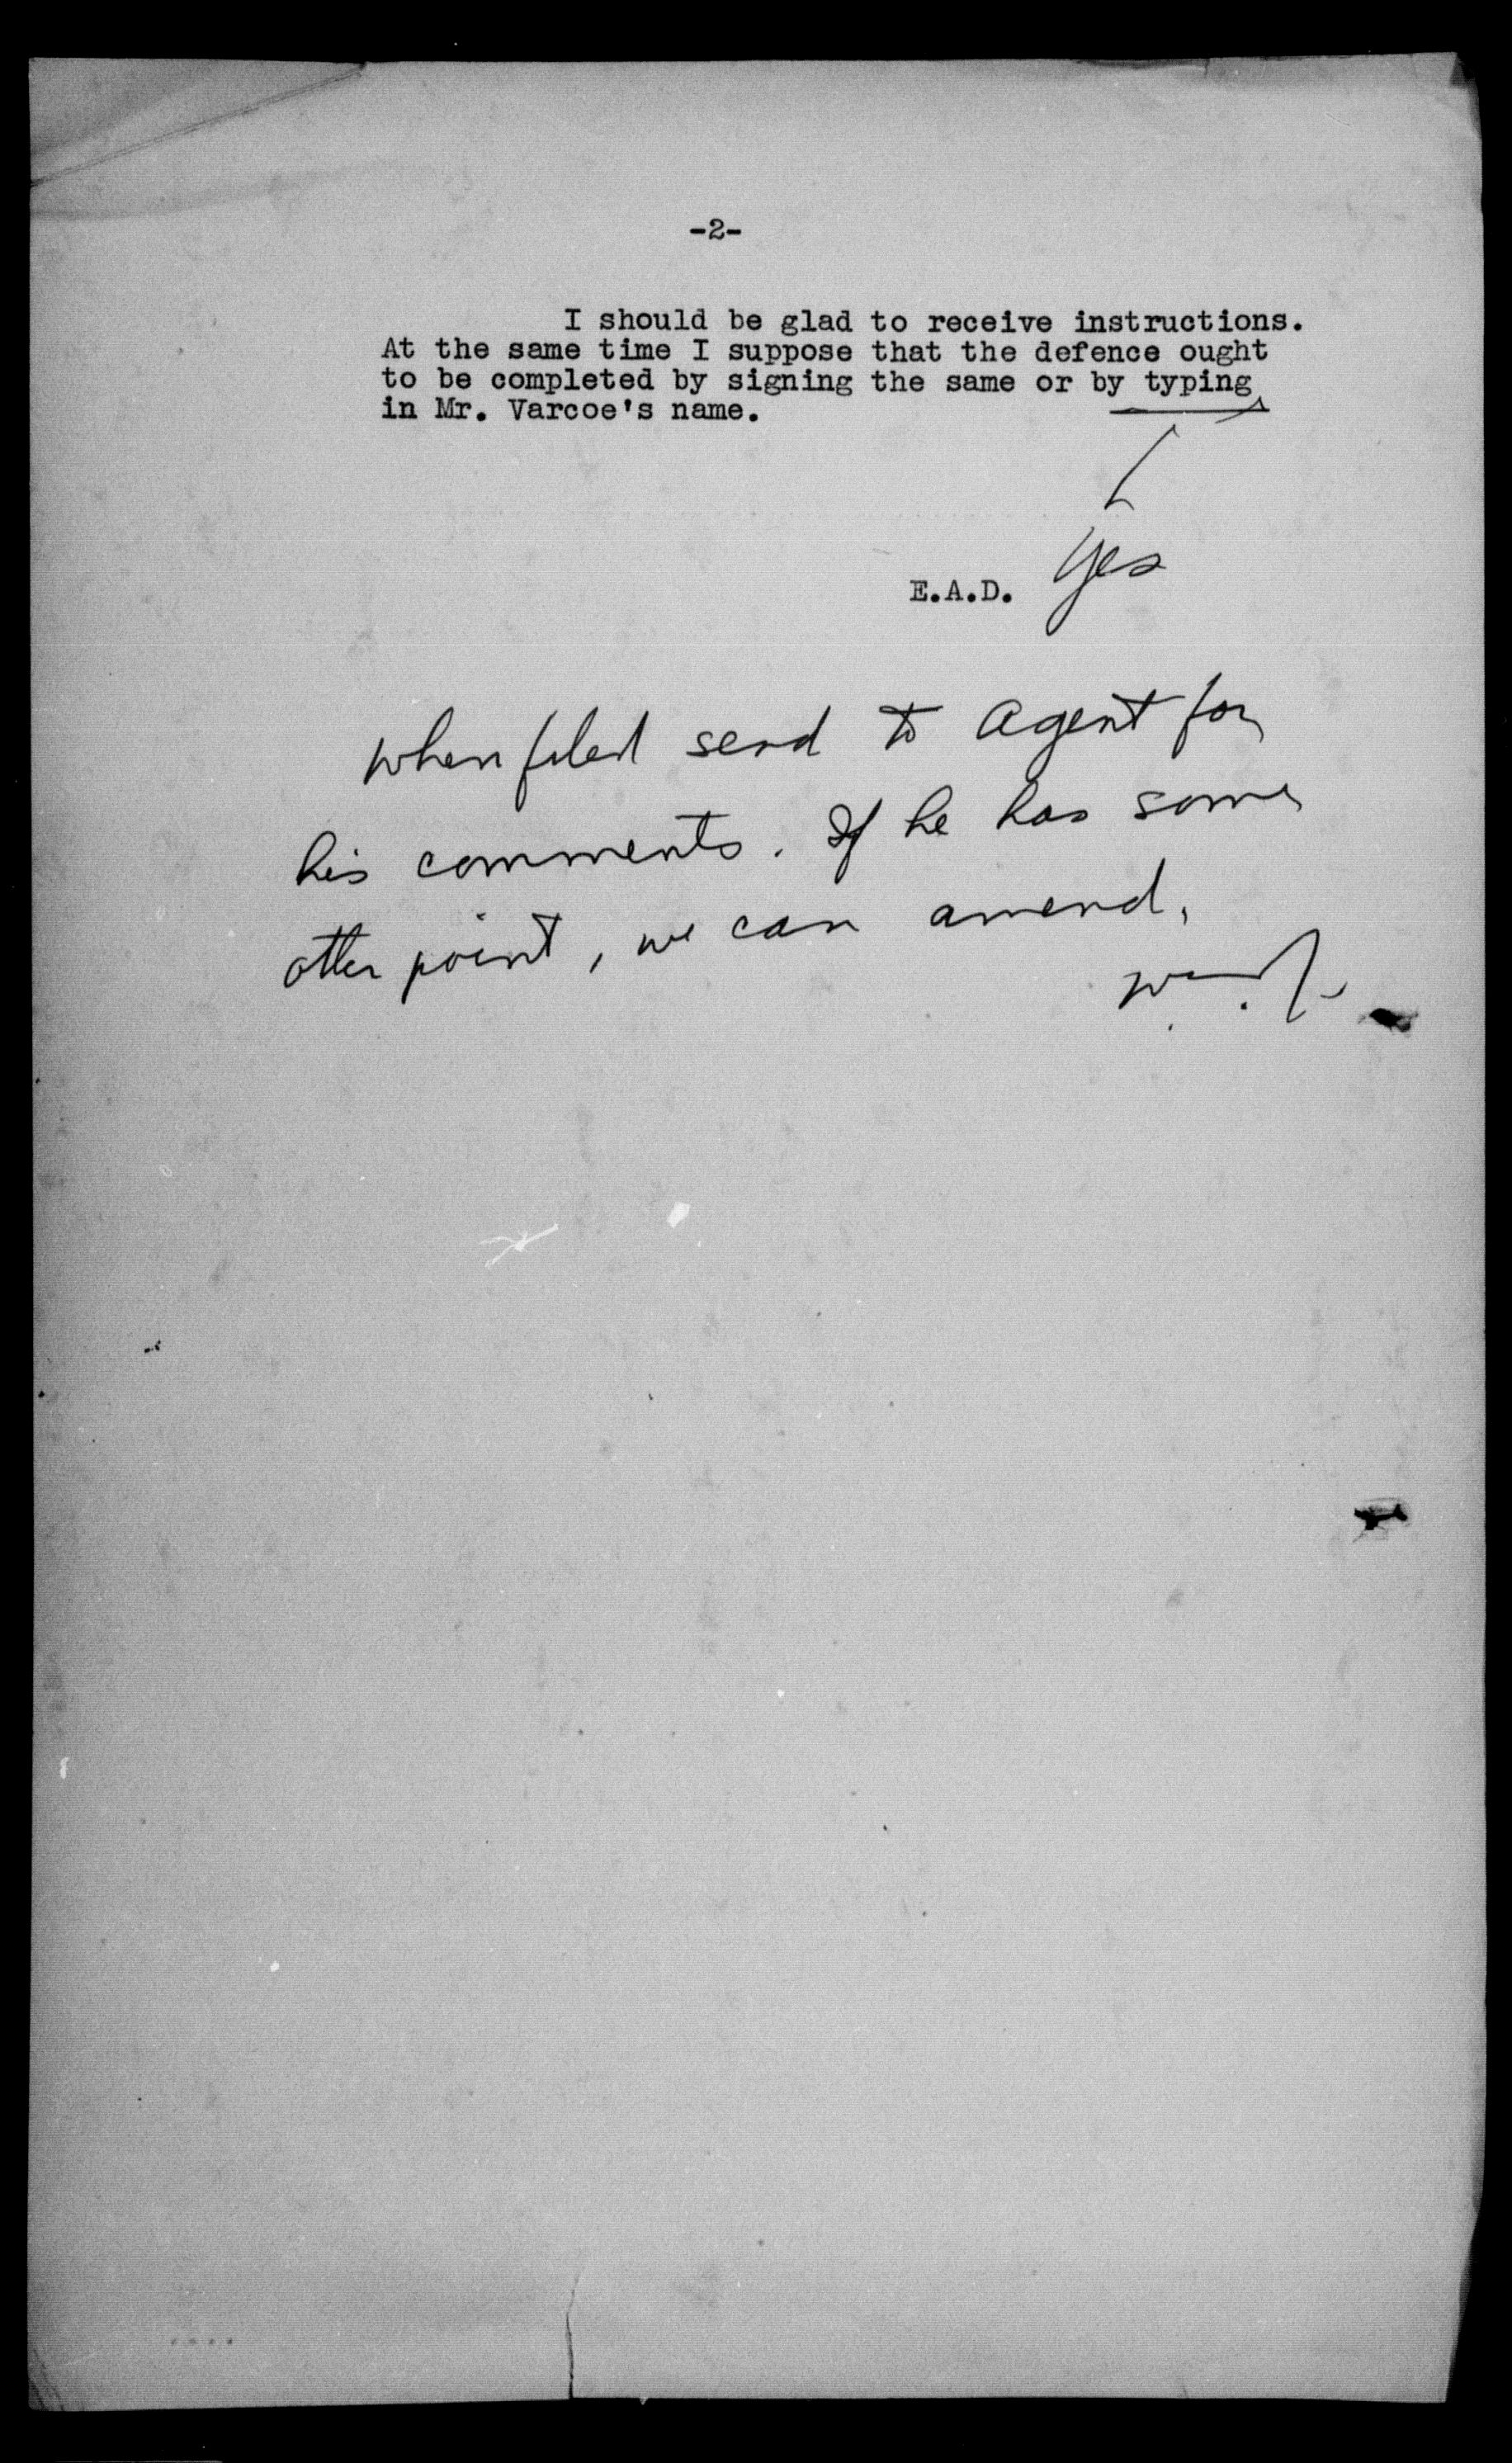 -2-
I should be glad to receive instructions.
At the same time I suppose that the defence ought
to be completed by signing the same or by typing
in Mr. Varcoe's name.
E.A.D. Yes
when filed send to agent for
his comments. If he has some
other point, we can amend.